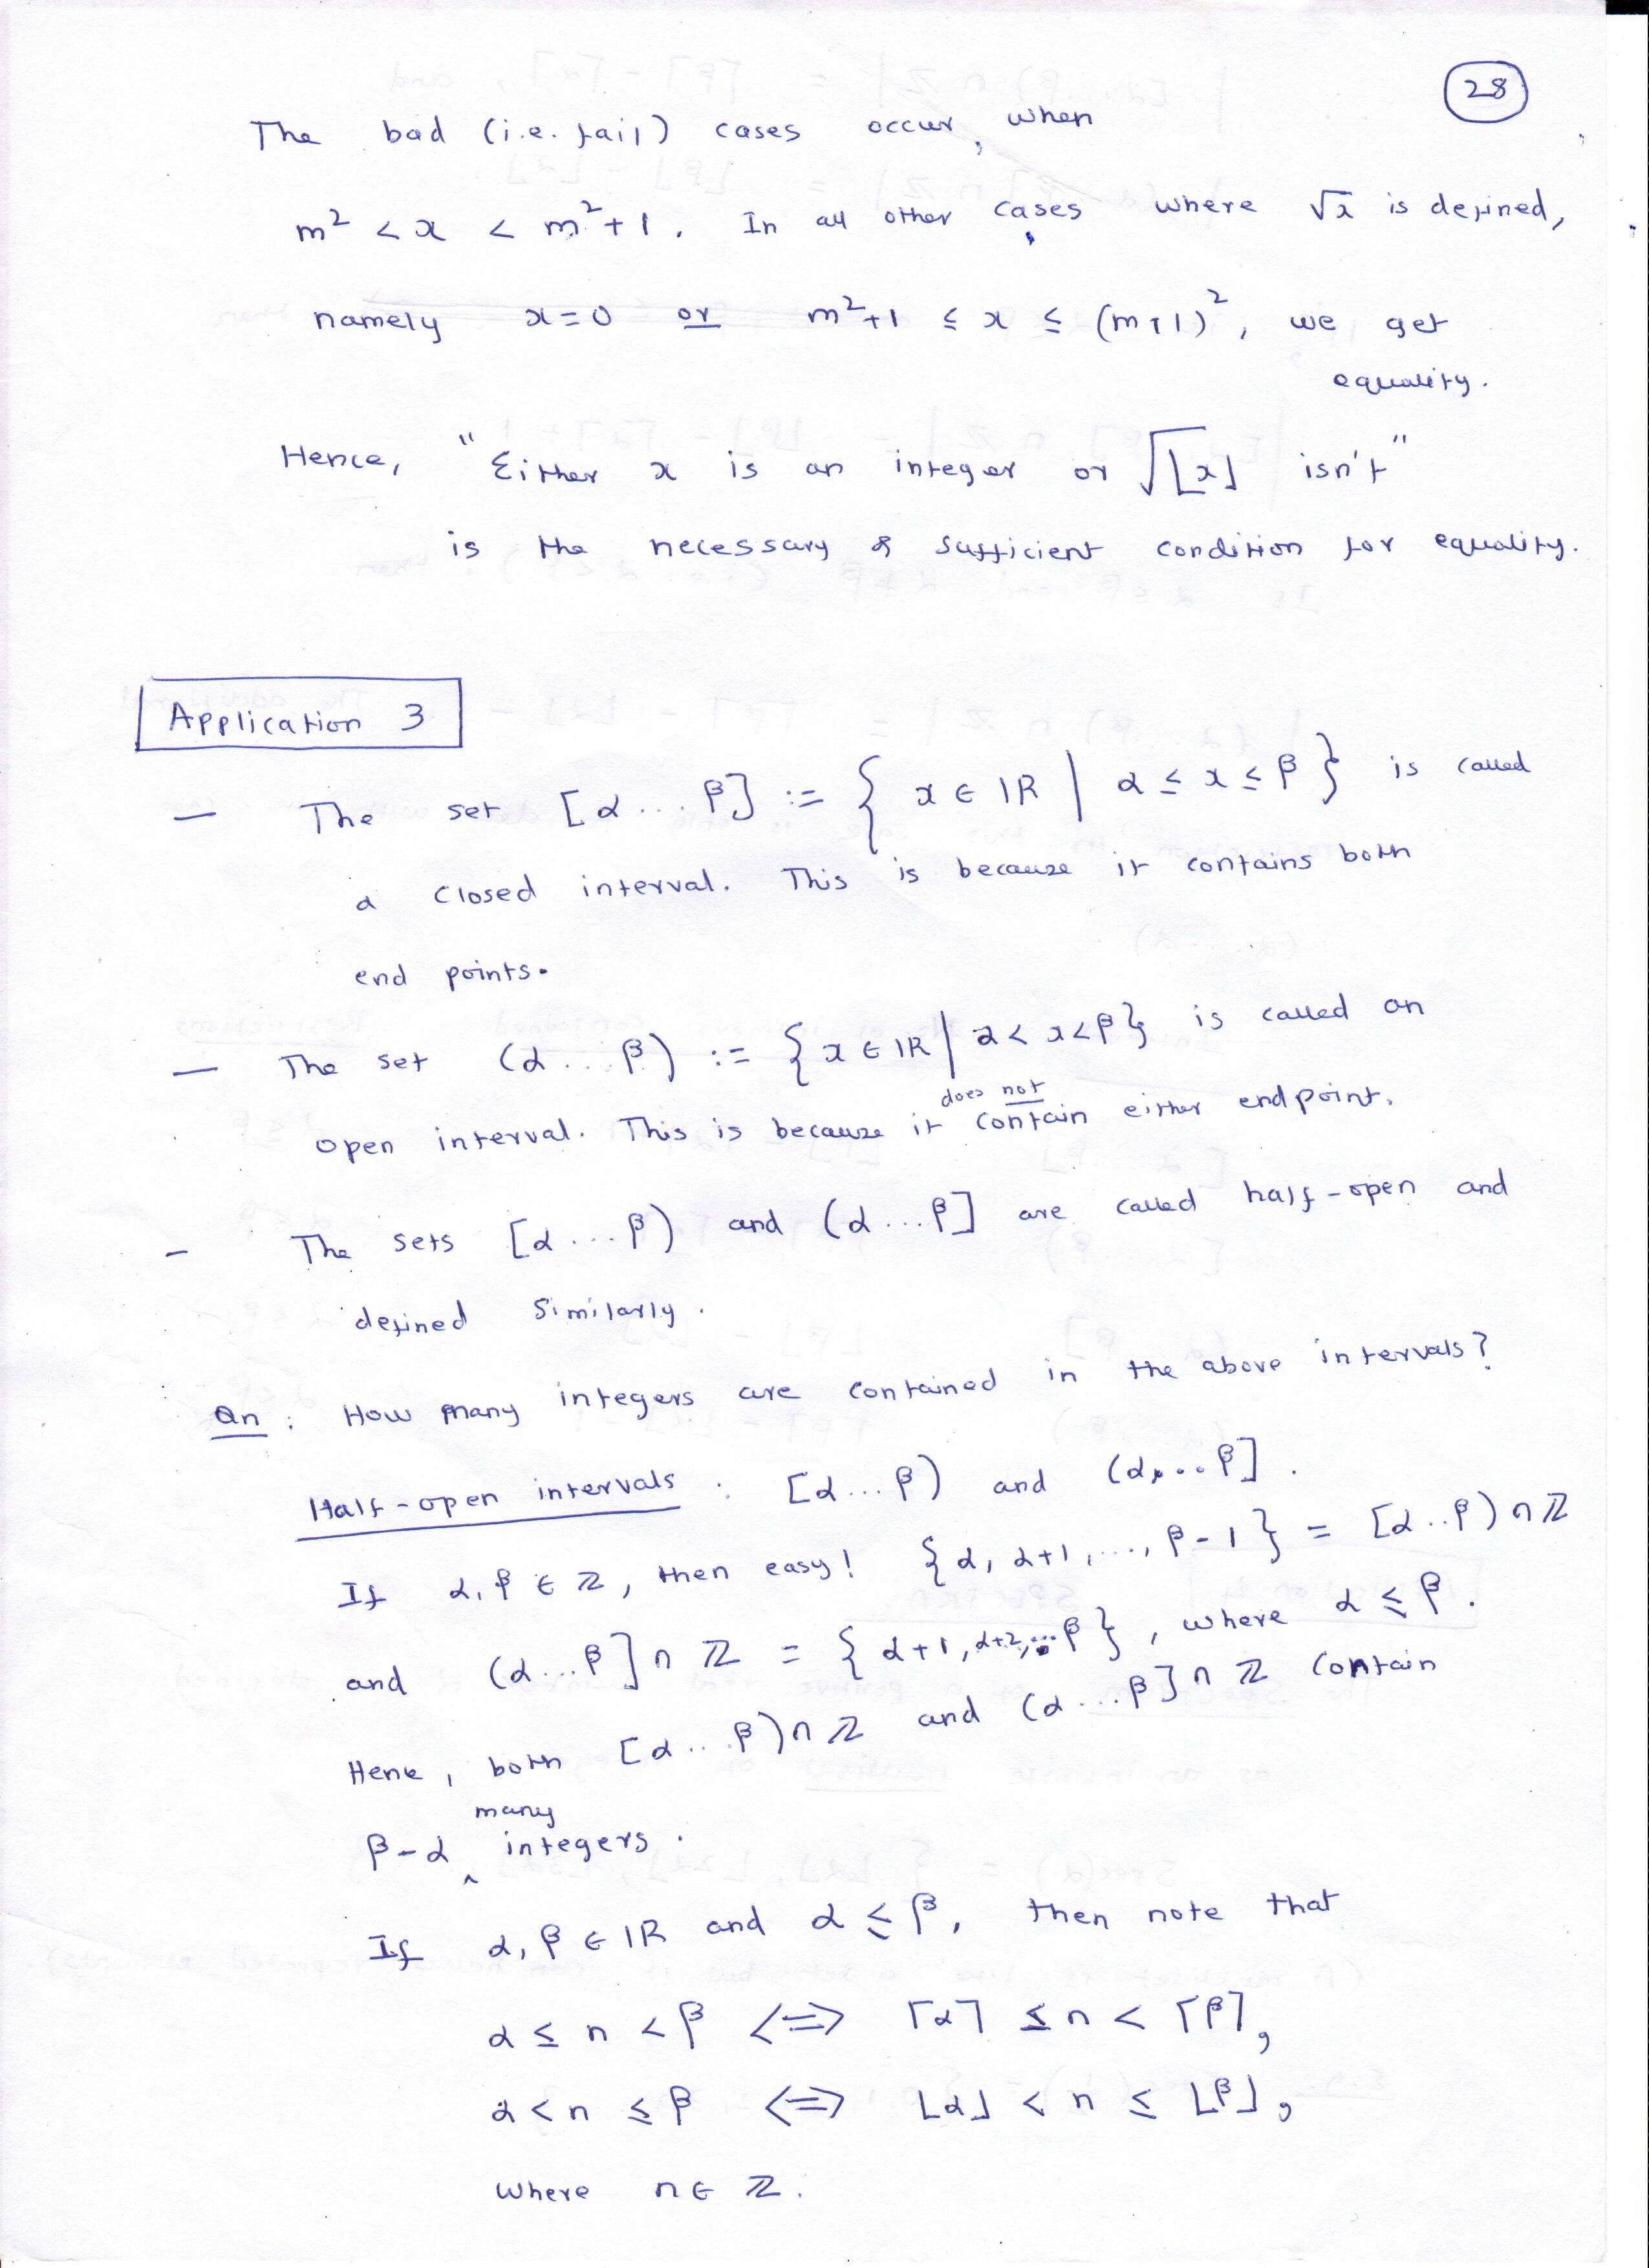 28
The bad (i.e. fail) cases occur, when
m² < x < m²+1. In all other cases, where √x is defined,
namely x=0 or m²+1 ≤ x ≤ (m+1)², we get
equality.
Hence, "Either x is an integer or √⌊x⌋ isn't"
is the necessary & sufficient condition for equality.
Application 3
— The set [α...β] := { x ∈ ℝ | α ≤ x ≤ β } is called
a closed interval. This is because it contains both
end points.
— The set (α...β) := { x ∈ ℝ | α < x < β } is called an
open interval. This is because it does not contain either endpoint.
— The sets [α...β) and (α...β] are called half-open and
defined similarly.
Qn: How many integers are contained in the above intervals?
Half-open intervals: [α...β) and (α...β].
If α, β ∈ ℤ, then easy! {α, α+1, ..., β-1} = [α..β) ∩ ℤ
and (α...β] ∩ ℤ = {α+1, α+2, ... β}, where α ≤ β.
Hence, both [α...β) ∩ ℤ and (α...β] ∩ ℤ contain
β-α many integers.
If α, β ∈ ℝ and α ≤ β, then note that
α ≤ n < β <=> ⌈α⌉ ≤ n < ⌈β⌉,
α < n ≤ β <=> ⌊α⌋ < n ≤ ⌊β⌋,
where n ∈ ℤ.